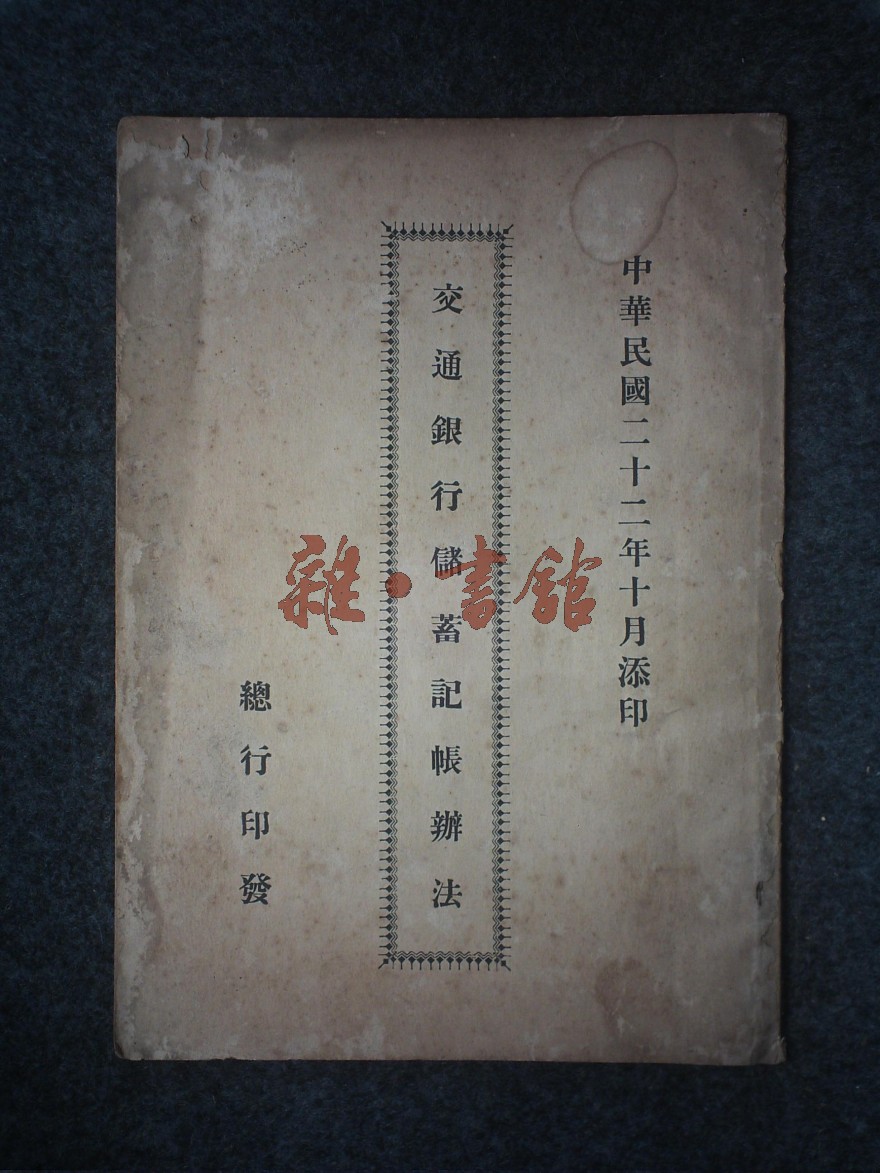 中華民國二十二年十月添印
交通銀行儲蓄記帳辦法
總行印發
雜·書館